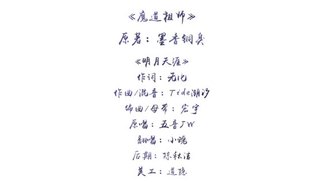 《魔道祖师》
原著：墨香铜臭
《明月天涯》
作词：
作曲/混音：Tide潮汐
编曲/母带：宏宇
原唱：五音JW
翻唱：小魂
后期：陈秋洁
美工：道隐